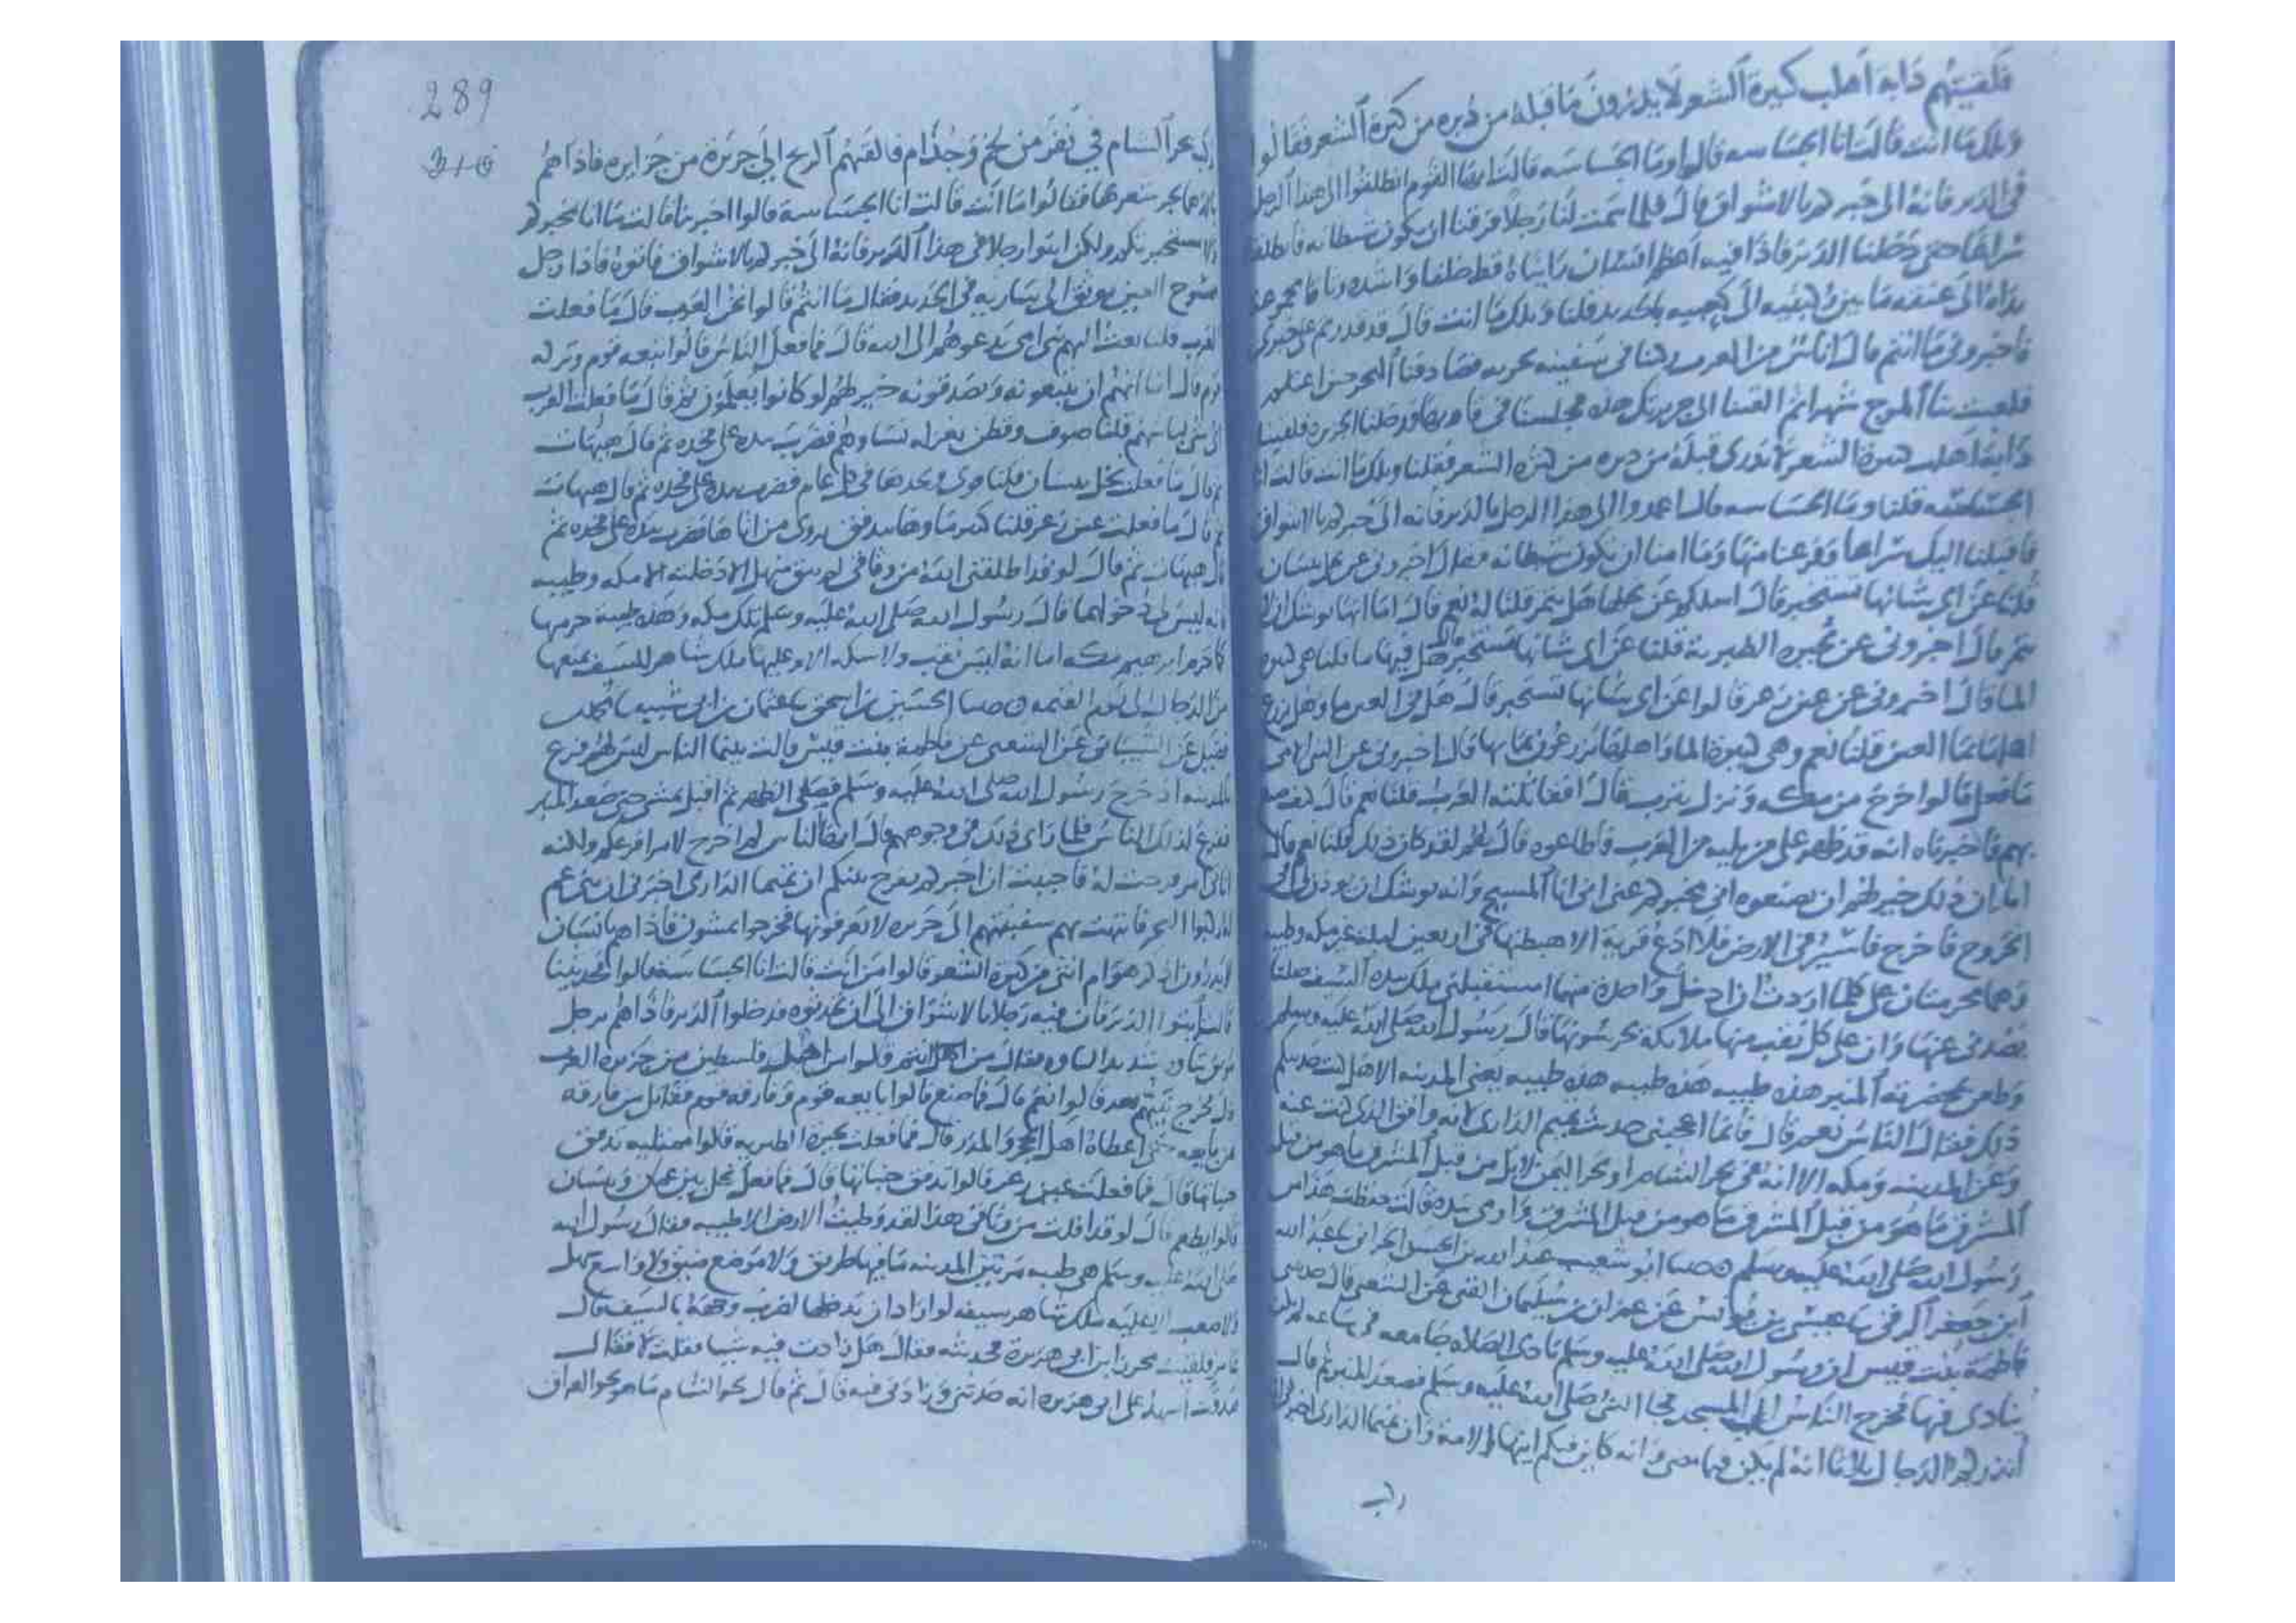 فلقيتهم دابة اهلب كثيرة الشعر لا يدرون ما قبله من دبره من كثرة الشعر فقالوا
ويلك ما انت قالت انا الجساسه قالوا وما الجساسه قالت ايها القوم انطلقوا الى هذا الرجل
في الدير فانه الى خبركم بالاشواق قال فلما سمت لنا رجلا فرقنا ان يكون شيطانه فانطلقنا
سراعا حتى دخلنا الدير فاذا فيه اعظم انسان رايناه قط خلقا واشده وثاقا مجموعة
يداه الى عنقه ما بين ركبتيه الى كعبيه بالحديد قلنا ويلك ما انت قال قد قدرتم على خبري
فاخبروني ما انتم قال اناس من العرب ركبنا في سفينه بحريه فصادفنا البحر حين اغتلم
فلعب بنا الموج شهرا ثم القينا الى جزيرتك هذه فجلسنا في قاربها ودخلنا الجزيره فلقينا
دابة اهلب كثيرة الشعر لا ندرى قبله من دبره من كثره الشعر فقلنا ويلك ما انت قالت انا
الجساسه فقلنا وما الجساسه قالت اعمدوا الى هذا الرجل بالدير فانه الى خبركم بالاشواق
فاقبلنا اليك سراعا وفزعنا منها وما امنا ان يكون شيطانه فقال اخبروني عن نخل بيسان
قلنا عن اي شانها تستخبر قال اسلكم عن نخلها هل يثمر قلنا له نعم قال اما انها توشك ان لا
تثمر قال اخبروني عن بحيره الطبرية قلنا عن اي شانها تستخبر قال هل فيها ما قلنا هي كثيرة
الما قال اخبروني عن عين زعر قالوا عن اي شانها تستخبر قال هل في العين ما وهل يزرع
اهلها بما العين قلنا نعم وهي كثيرة الما واهلها يزرعون بمايها قال اخبروني عن النبي الامي
ما فعل قالوا خرج من مكه ونزل يثرب قال اقاتلته العرب قلنا نعم قال كيف صنع
بهم فاخبرناه انه قد ظهر على من يليه من العرب فاطاعوه قال لهم لقد كان ذلك قلنا نعم قال
اما ان ذلك خير لهم ان يطيعوه اني مخبركم عني اني انا المسيح وانه يوشك ان يوذن لي في
الخروج فاخرج فاسير في الارض فلا ادع قرية الا هبطتها في اربعين ليلة غير مكه وطيبه
وهما محرمتان علي كلما اردت ان ادخل واحدة منهما استقبلني ملك بيده السيف صلتا
يصدني عنها وان على كل نقب منها ملائكة يحرسونها قال رسول الله صلى الله عليه وسلم
وطعن بمخصرته المنبر هذه طيبه هذه طيبه هذه طيبه يعني المدينه الا هل كنت حدثتكم
ذلك فقال الناس نعم قال فانما اعجبني حديث تميم الداري انه وافق الذي كنت عنه
وعن المدينه ومكه الا انه في بحر الشام او بحر اليمن لا بل من قبل المشرق ما هو من قبل
المشرق ما هو من قبل المشرق ما هو من قبل المشرق واومى بيده قالت حفظت هذا من
رسول الله صلى الله عليه وسلم حدثنا ابو شعيب عبد الله بن الحسن الحراني نا عبد الله
ابن جعفر الرقي نا عيسى بن يونس عن عمران بن سليمان القبي عن الشعبي قال حدثتني
فاطمة بنت قيس ان رسول الله صلى الله عليه وسلم نادى الصلاه جامعه في ساعه لم يكن
ينادى فيها فخرج الناس الى المسجد فجا النبي صلى الله عليه وسلم فصعد المنبر ثم قال
انذركم الدجال ثلاثا انه لم يكن فيما مضى وانه كاين فيكم ايتها الامة وان تميما الداري اخبرني انه
ركب
289
ركب بحر الشام في نفر من لخم وجذام فالقتهم الريح الى جزيرة من جزايره فاذا هم
بالدهما يجر شعرها فقالوا ما انت قالت انا الجساسة قالوا اخبرينا قالت ما انا مخبركم
ولا مستخبرتكم ولكن ايتوا رجلا في هذا الدير فانه الى خبركم بالاشواق فاتوه فاذا رجل
ممسوح العين موثق الى ساريه في الحديد فقال ما انتم قالوا نحن العرب قال ما فعلت
العرب قلنا بعث اليهم نبي امي يدعوهم الى الله قال فما فعل الناس قالوا اتبعه قوم وتركه
قوم قال اما انهم ان يتبعونه ويصدقونه خير لهم لو كانوا يعلمون ثم قال ما فعلت العرب
اي شي لباسهم قلنا صوف وقطن يغزله نساوهم فضرب بيده على فخده ثم قال هيهات
ثم قال ما فعلت نخل بيسان قلنا نوى ويجدها في كل عام فضرب بيده على فخده ثم قال هيهات
ثم قال ما فعلت عين زعر قلنا كثير ماوها يتدفق يروى من اتاها فضرب بيده على فخده ثم
قال هيهات ثم قال لو قد اطلقني الله من وثاقي لم يبق منهل الا دخلته الا مكه وطيبه
فانه ليس لي دخولهما قال رسول الله صلى الله عليه وسلم تلك مكه وهذه طيبة حرمها
كما حرم ابرهيم مكه اما انه ليس نقب ولا سكه الا وعليها ملك شاهر السيف يمنعها
من الدجال الى يوم القيمه حدثنا الحسين بن اسحق نا عثمن بن ابي شيبه نا محمد بن
فضيل عن الشيباني عن الشعبي عن فاطمة بنت قيس قالت بينما الناس ليس لهم فزع
بالمدينه اذ خرج رسول الله صلى الله عليه وسلم فصلى الظهر ثم اقبل يمشي حتى صعد المنبر
ففزع لذلك الناس فلما راى ذلك في وجوههم قال ايها الناس لم اخرج لامر افزعكم ولكنه
اتاني امر فرحت له فاحببت ان اخبركم بفرح نبيكم ان تميما الداري اخبرني ان بني عم
له ركبوا البحر فانتهت بهم سفينتهم الى جزيره لا يعرفونها فخرجوا يمشون فاذا هم بانسان
لا يدرون اذكر هو ام انثى من كثرة الشعر فقالوا من انت قالت انا الجساسة فقالوا فحدثينا
قالت ايتوا الدير فان فيه رجلا بالاشواق الى ان تحدثوه فدخلوا الدير فاذا هم برجل
قال يخرج نبيهم بعد قالوا نعم قال فما صنع قالوا بايعه قوم وفارقه قوم فقاتل من فارقه
من بايعه حتى اعطاه اهل الحجر والمدر قال فما فعلت بحيره الطبريه قالوا ممتليه تدفق
جنباتها قال فما فعلت عين زعر قالوا تدفق جنباتها قال فما فعل نخل بين عمان وبيسان
قالوا يطعم قال لو قد افلت من وثاقي هذا لقد وطيت الارض الا طيبه فقال رسول الله
صلى الله عليه وسلم هي طيبه مرتين المدينه ما فيها طريق ولا موضع ضيق ولا واسع سهل
ولا صعب الا عليه ملك شاهر سيفه لو اراد ان يدخلها لضرب وجهه بالسيف قال
عامر فلقيت محرز ابن ابي هريرة فحدثته فقال هل زادت فيه شيا فقلت لا فقال
صدقت اشهد على ابي هريره انه حدثني وزادني فيه قال ثم قال نحو الشام ما هو نحو العراق